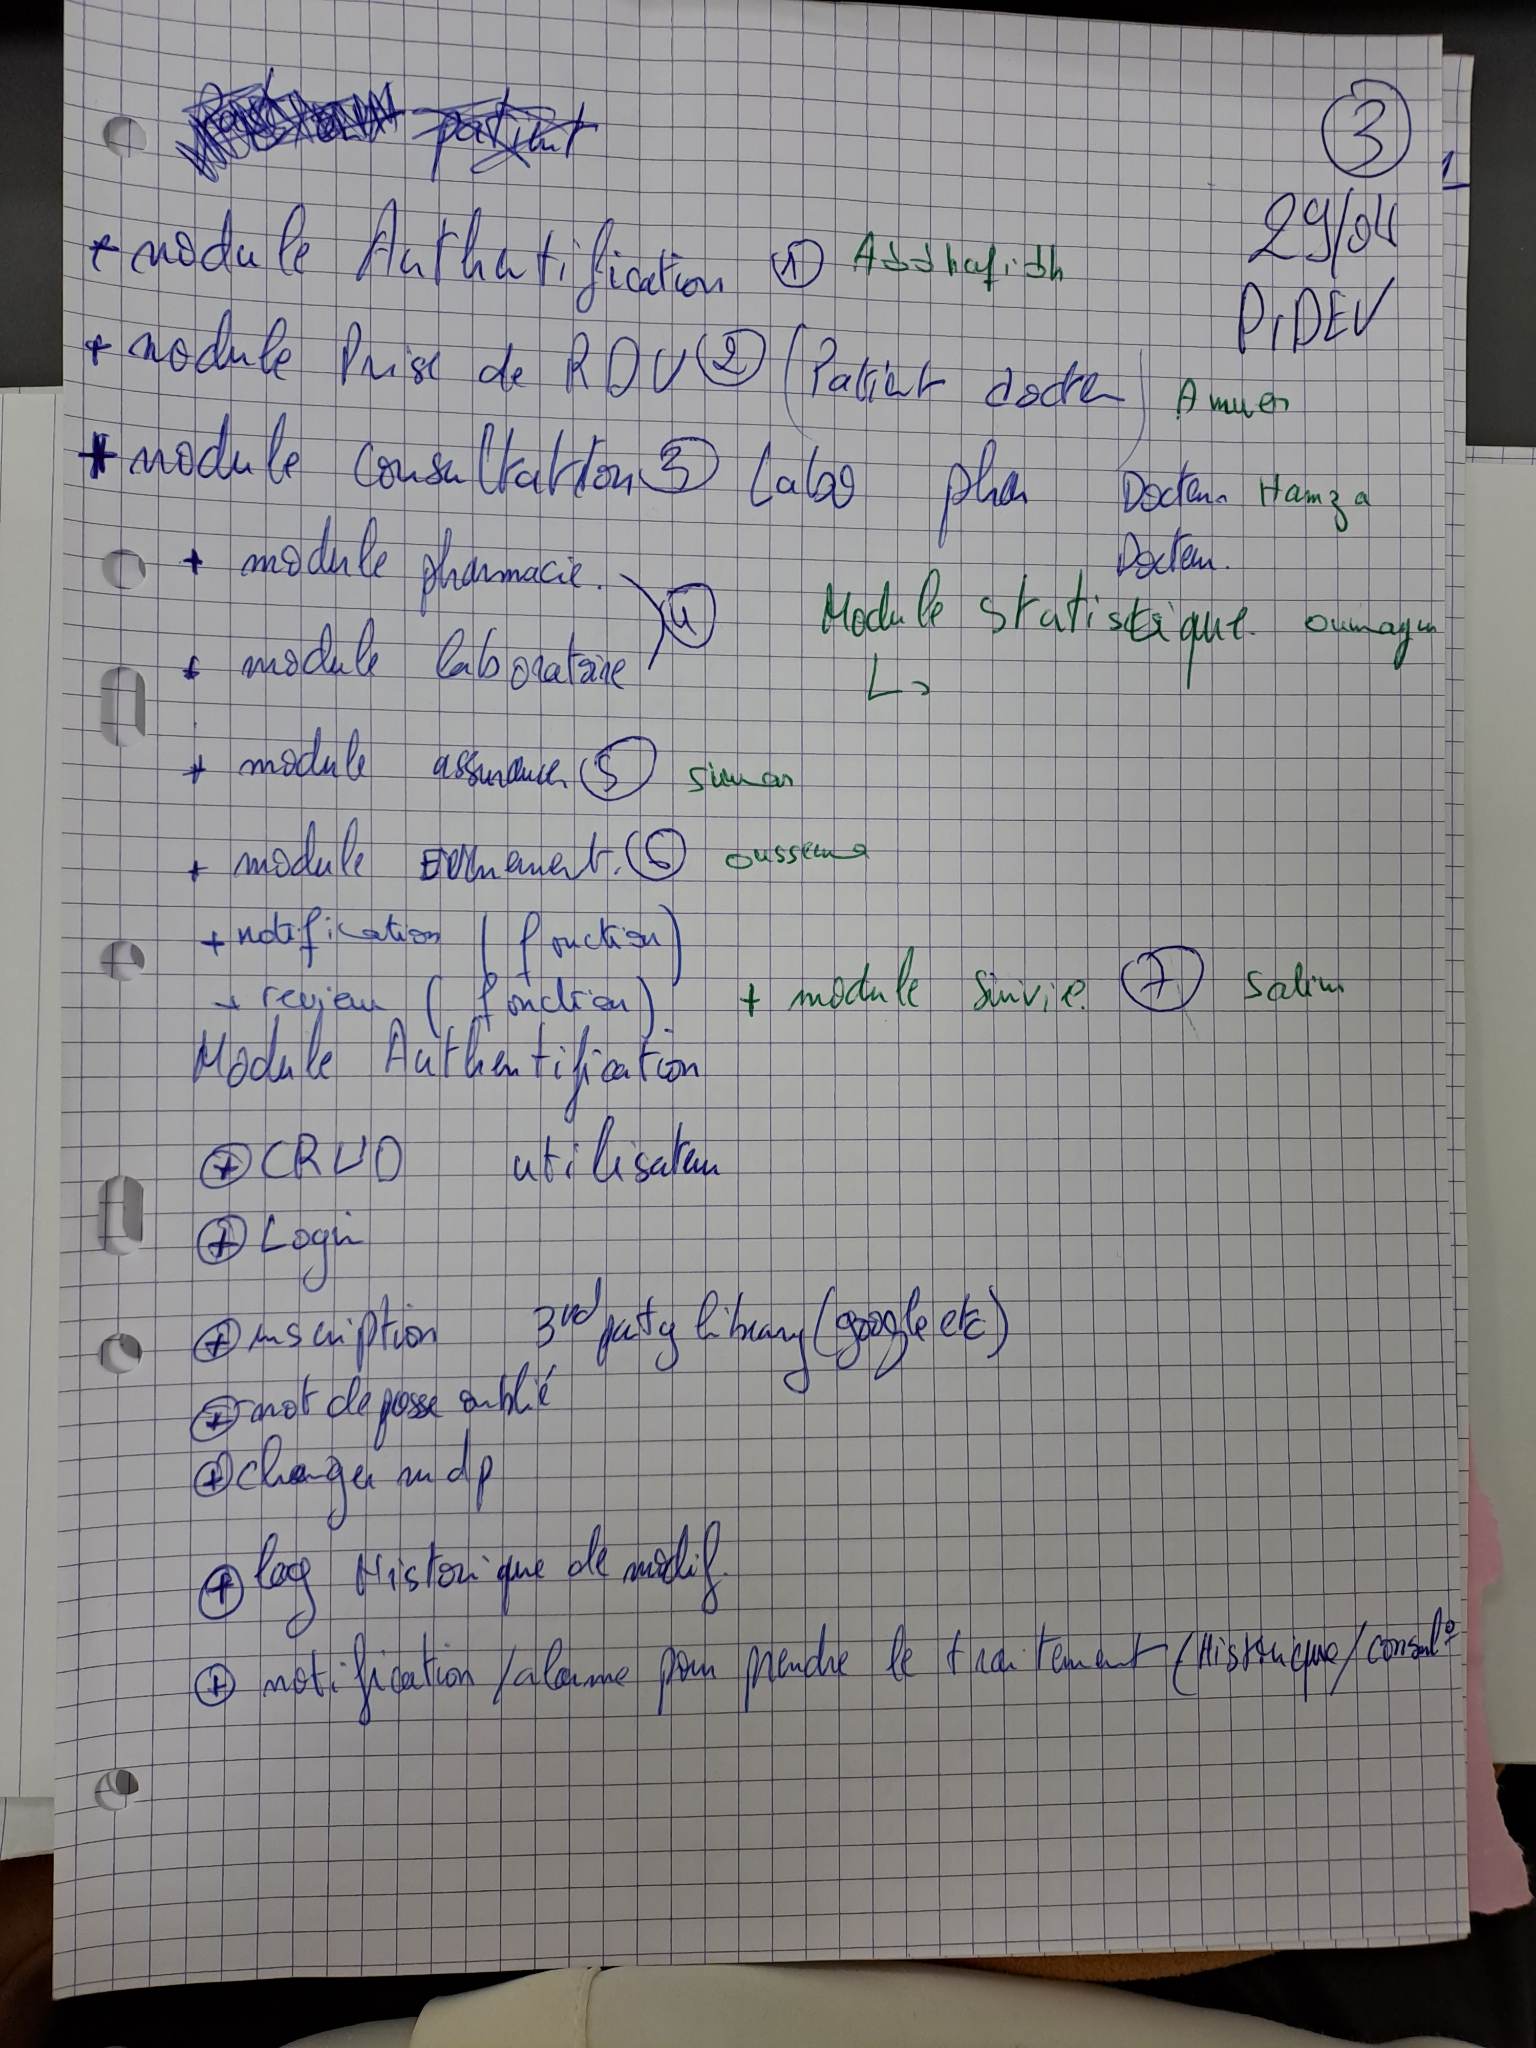 3
29/04
PIDEV
+ module Authatification 1 Abdhafidh
+ module Prise de RDV 2 (Patient docteur)
+ module consultation 3 Labo phar Docteur Hamza
Docteur.
+ module pharmacie. 4
+ module laboratoire
Module statistique.
+ module assurance 5
+ module 6 oussema
+ notification (fonction)
+ review (fonction)
+ module Suivie. 7 Salim
Module Authentification
+ CRUD utilisateur
+ Login
+ inscription 3rd party library (google etc)
+ mot de passe oublié
+ changer mdp
+ log Historique de modif.
+ notification / alarme pour prendre le traitement (Historique / consul°